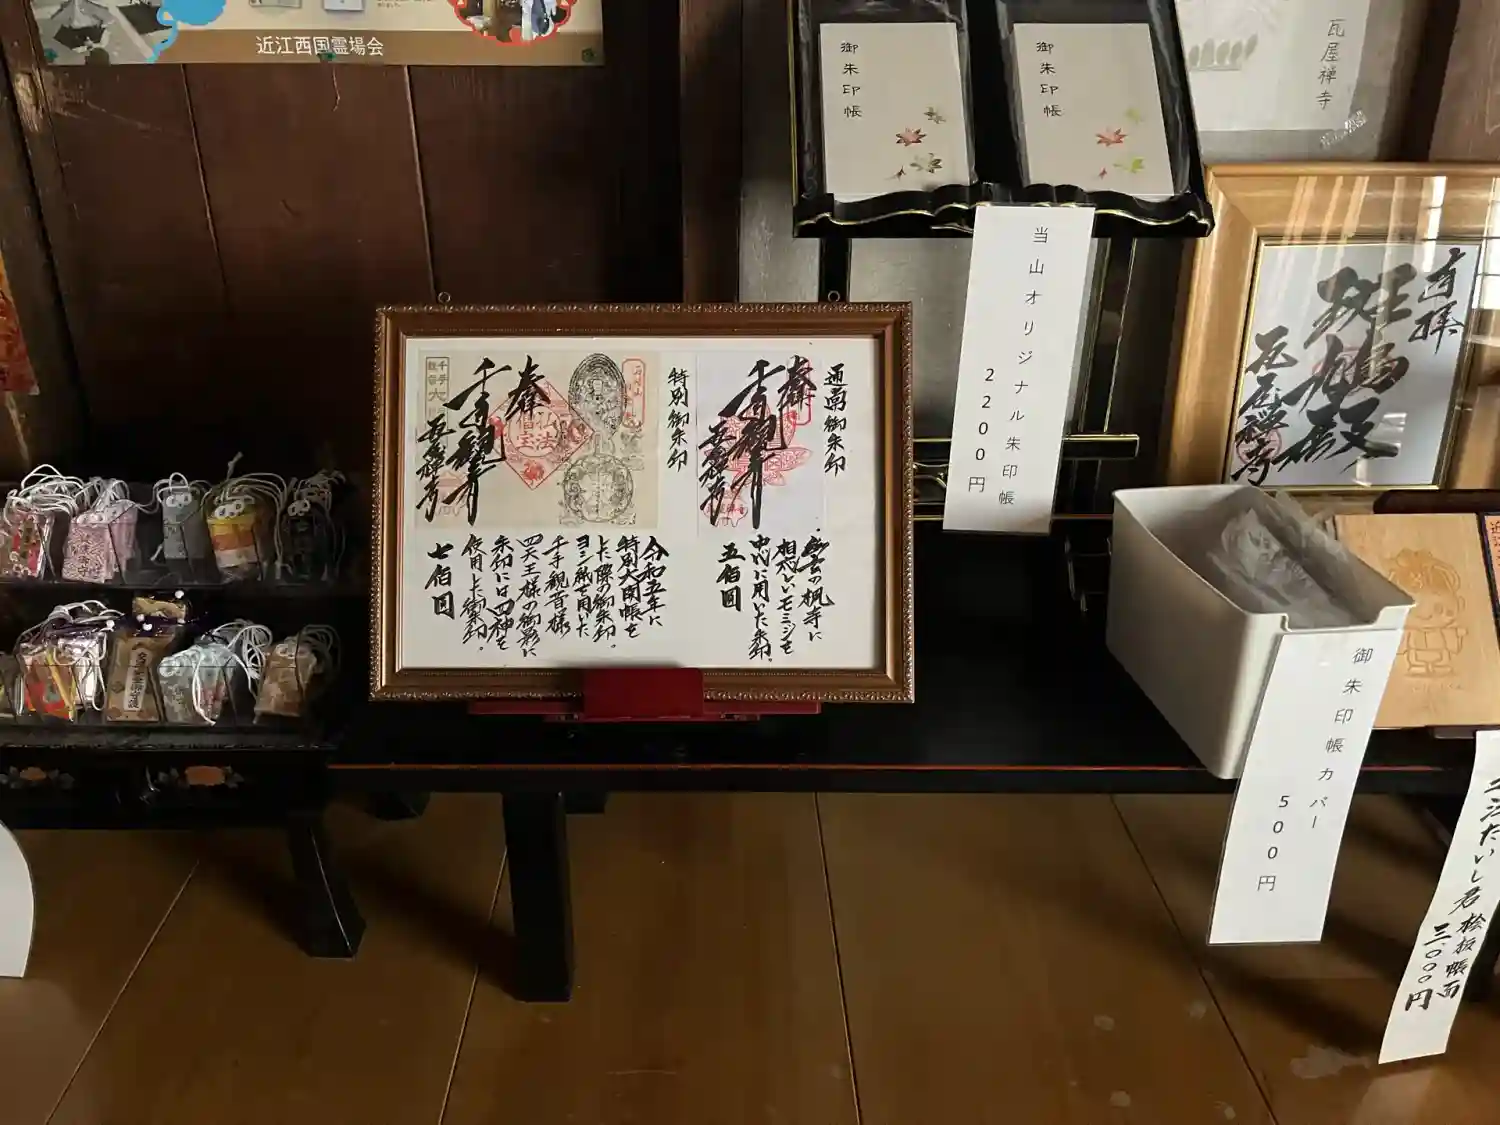 近江西国霊場会
御朱印帳
御朱印帳
瓦屋禅寺
当山オリジナル朱印帳
2200円
通常御朱印
奉拝
千手観音
瓦屋禅寺
想い
モミジを
中心に用いた朱印。
五佰圓
特別御朱印
奉拝
千手観音
瓦屋禅寺
仏法僧宝
令和五年に
特別大開帳を
した際の御朱印。
ヨシ紙を用いた
千手観音様
四天王様の御影に
朱印には四神を
使用した御朱印。
七佰圓
奉拝
斑鳩殿
瓦屋禅寺
御朱印帳カバー
500円
たいし君
桧板帳面
三、〇〇〇円